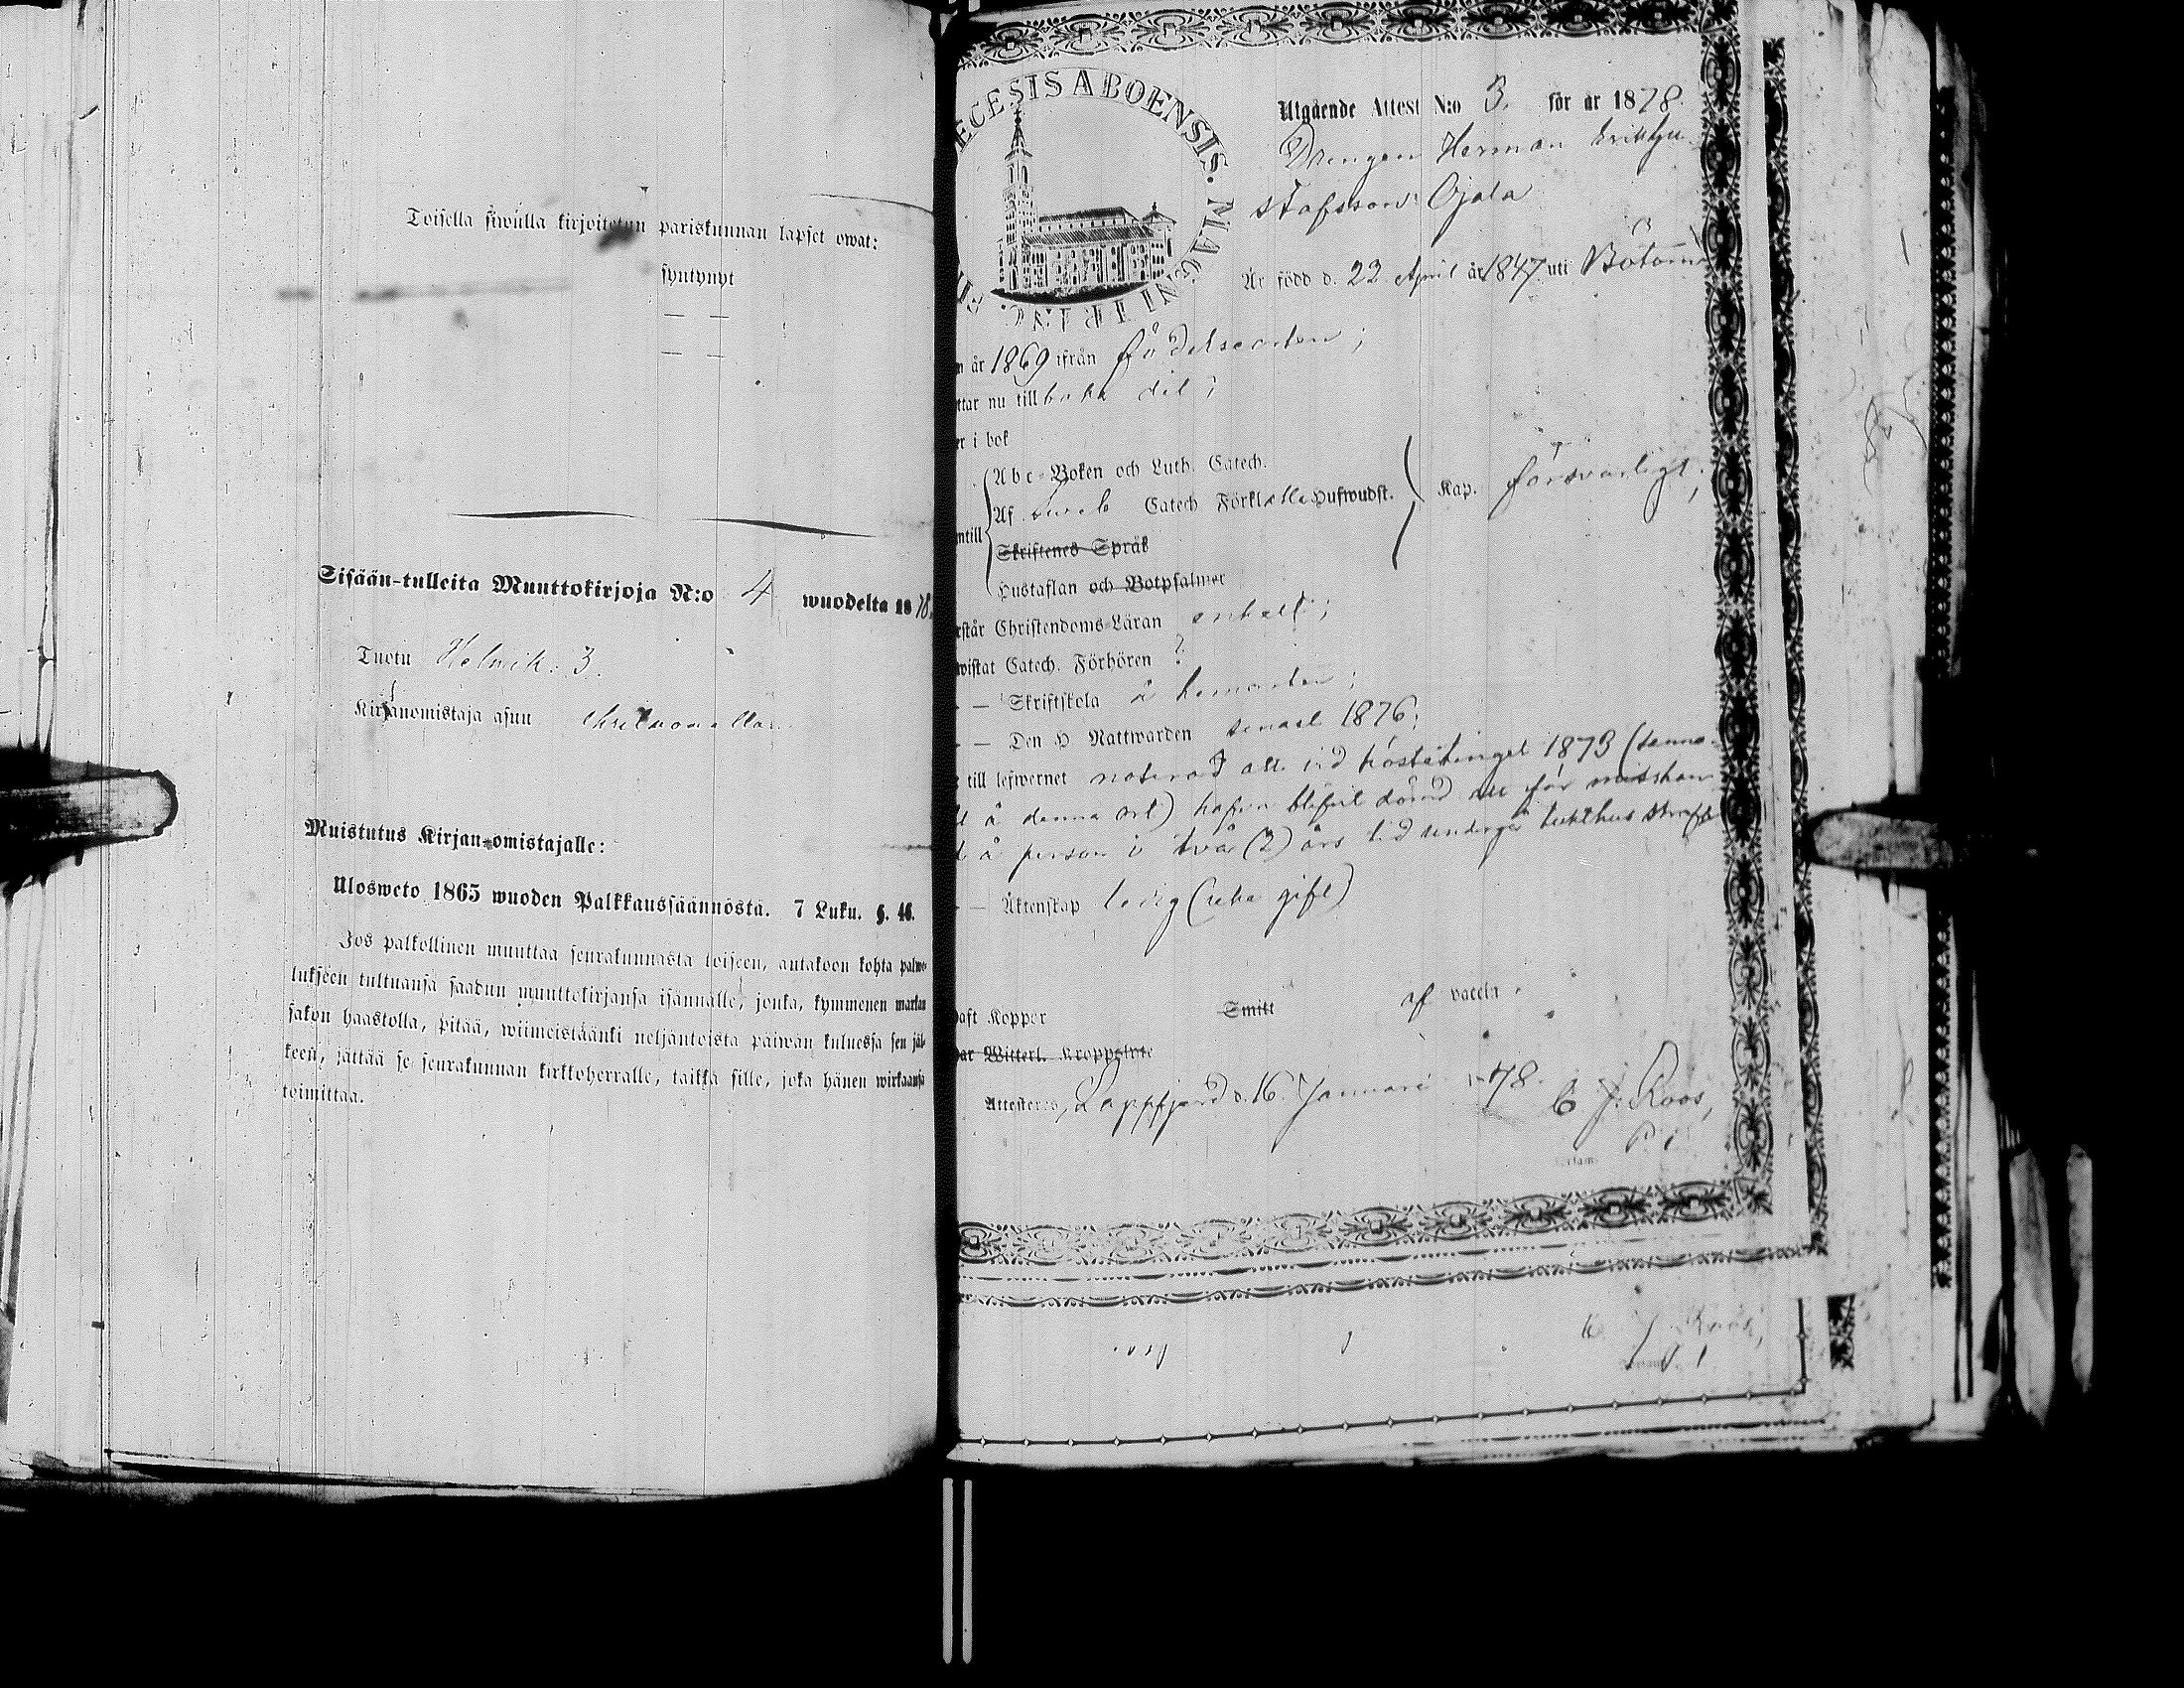 Toisella siwulla kirjoitetun pariskunnan lapset owat:
syntynyt
— —
— —
Sisään-tulleita Muuttokirjoja N:o 4 wuodelta 1878.
Tuotu Helmik. 3.
Kirjanomistaja asuu
Muistutus Kirjan-omistajalle:
Ulosweto 1865 wuoden Palkkaussäännöstä. 7 Luku. §. 46.
Jos palkollinen muuttaa seurakunnasta toiseen, antakoon kohta palwe-
lukseen tultuansa saadun muuttokirjansa isännälle, jonka, kymmenen markan
sakon haastolla, pitää, wiimeistäänki neljäntoista päiwän kuluessa sen jäl-
keen, jättää se seurakunnan kirkkoherralle, taikka sille, joka hänen wirkaansa
toimittaa.
ECESIS ABOENSIS. MAG
Utgående Attest N:o 3. för år 1878.
Drengen Herman Erik Gu-
stafsson Ojala
Är född d. 22 April år 1847 uti Bötom
n år 1869 ifrån födelseorten;
ttar nu tillbaka dit;
er i bok
Abc-Boken och Luth. Catech.
Af Sveb Catech Förkl alla Hufwudst. Kap. försvarligt;
ntill
Skriftenes Språk
Hustaflan och Botpsalmer
rstår Christendoms-Läran enkelt;
wistat Catech. Förhören ?
— — Skriftskola å hemorten;
— — Den H Nattwarden senast 1876;
t till lefwernet noterad att vid hösttinget 1873 (
å denna ort) hafva blifvit dömd att för misshan
å person i två (2) års tid undergå tukthus straff
— — Äktenskap ledig (icke gift)
aft Koppor Smitt af vaccin.
ar Witterl. Kroppslyte
Attesteras, Lappfjerd d. 16 Januari 1878.
C J. Roos,